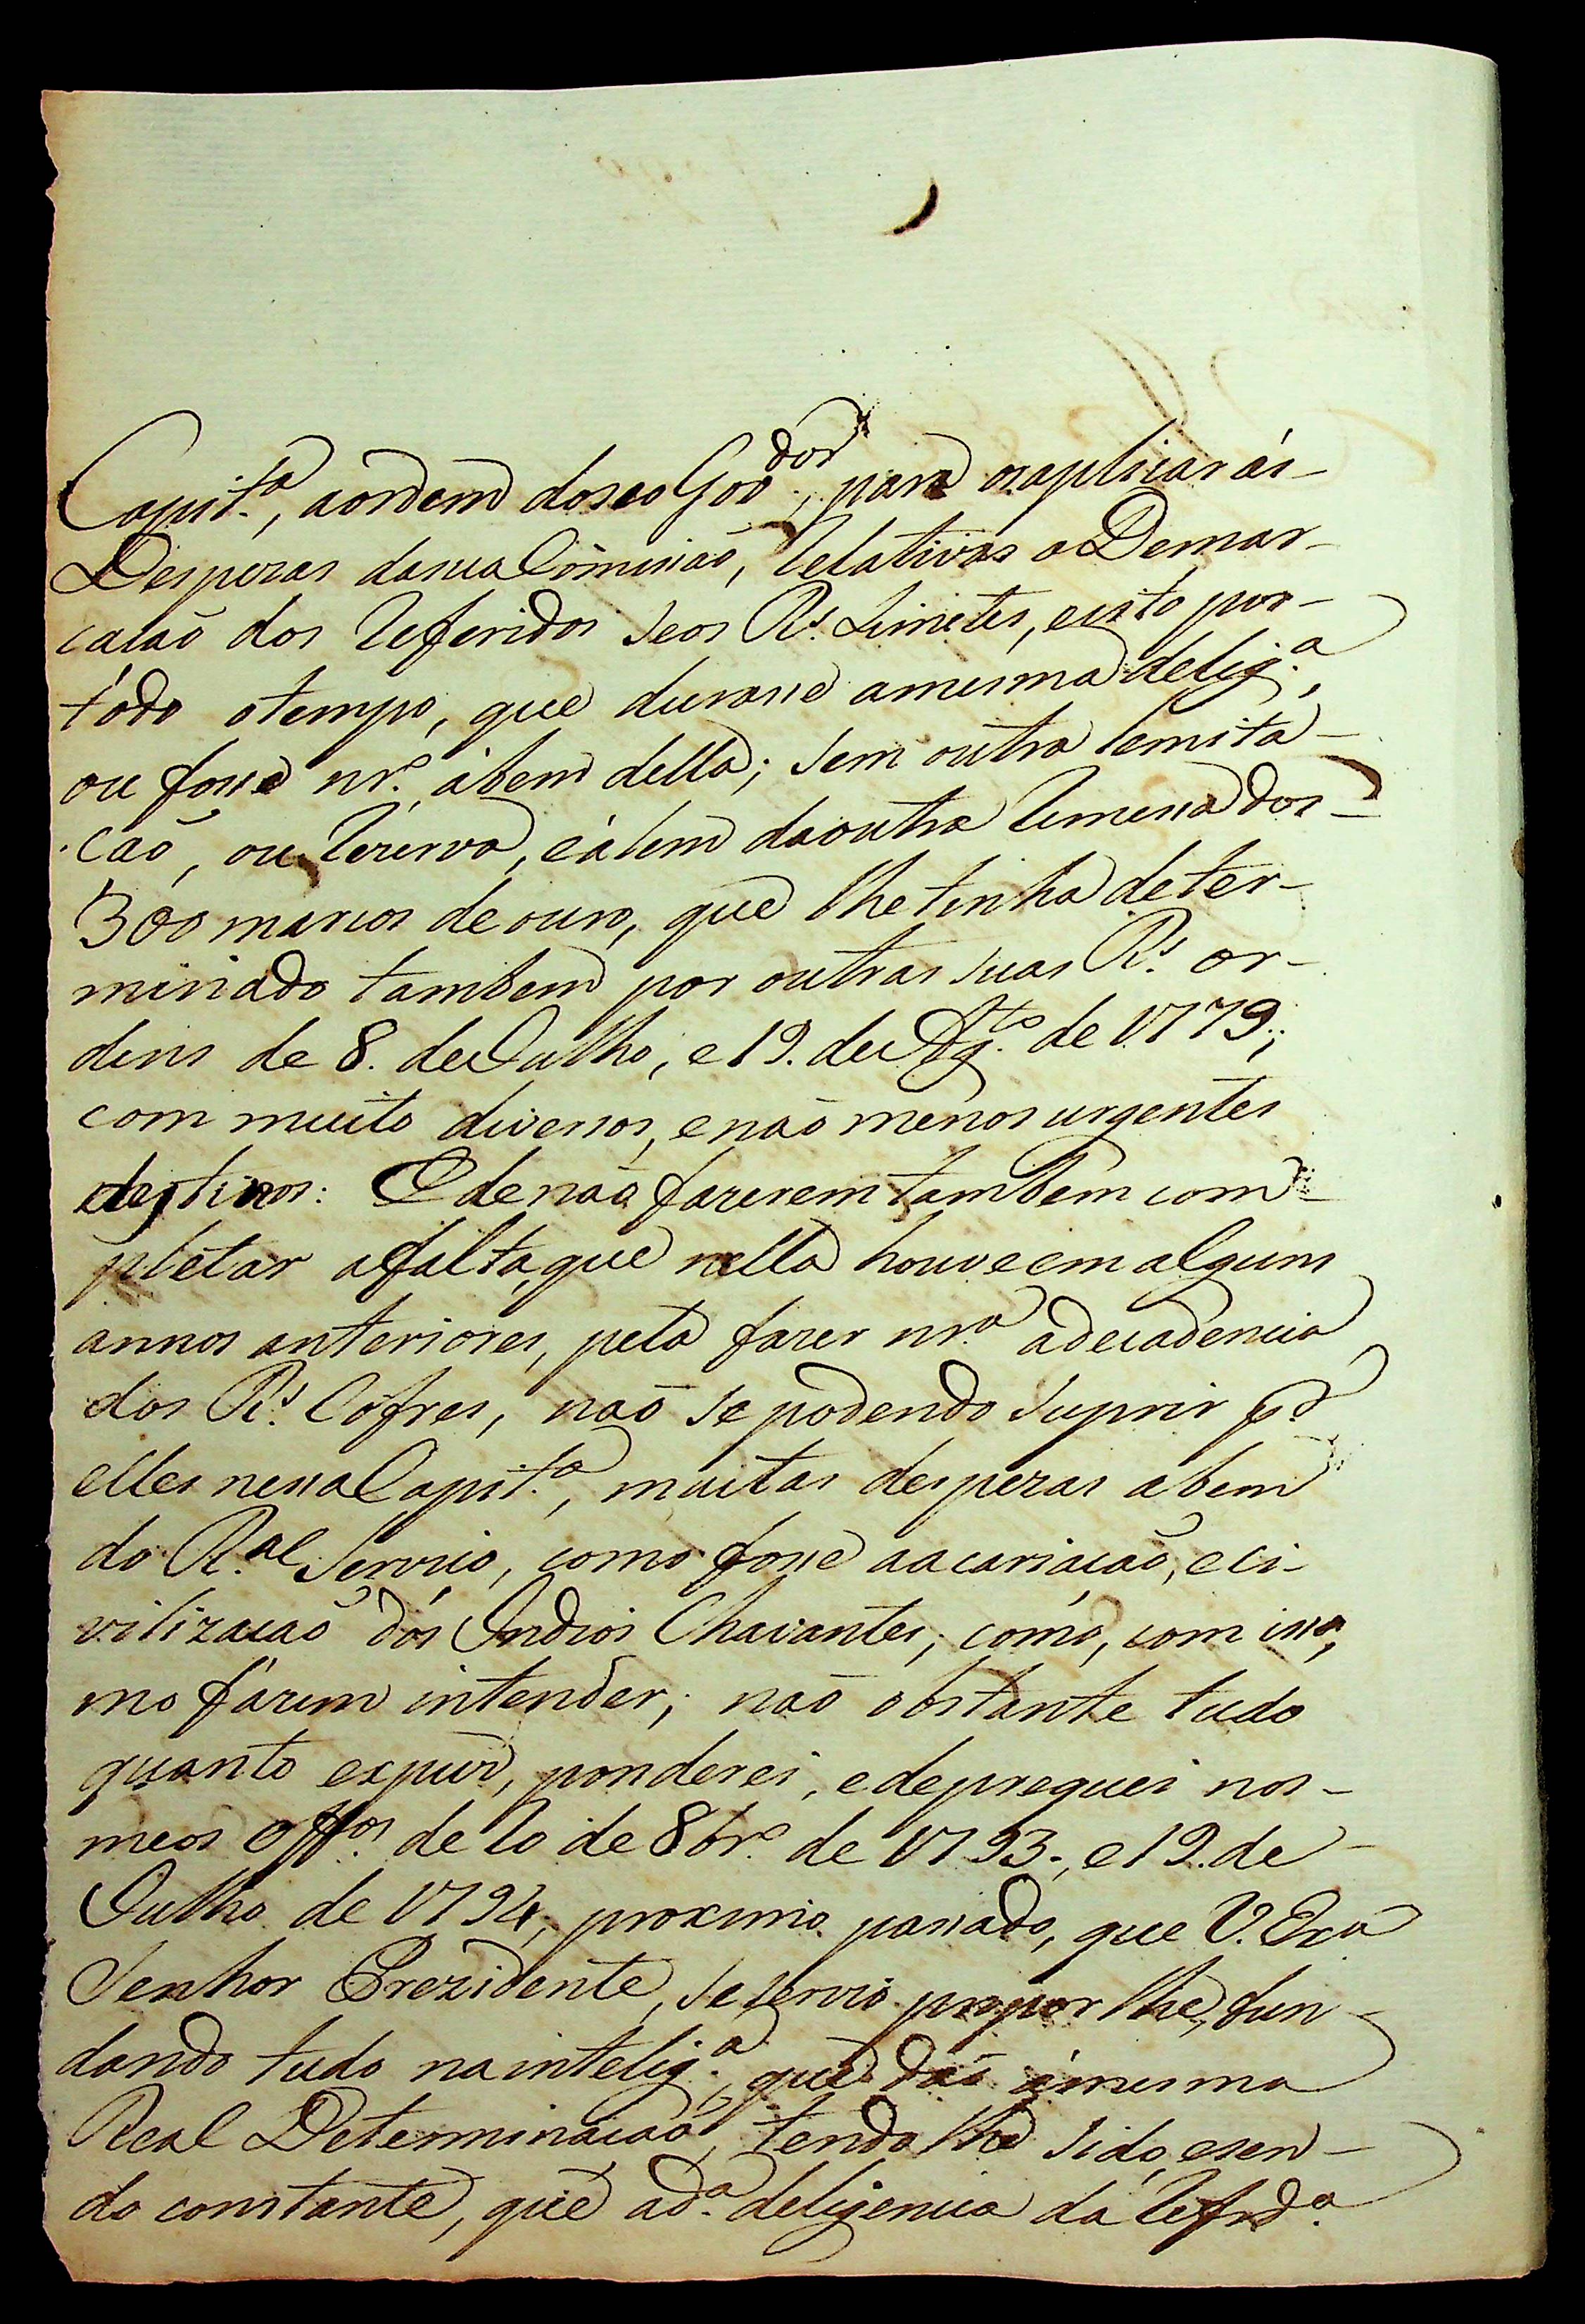 Capit.ª, aordem doseo Gov.dor, para os aplicar ás-
Despezas dasua Comissaõ, relativas a Demar-
cacaõ dos referidos seos R.s Limetes, eisto por-
tôdo otempo, que durasse amesma delig.ª,
ou fosse nr.º ábem della; sem outra lemita-
caõ, ou rezerva, eálem daoutra remessa dos-
300 marcos de ouro, que lhe tinha deter-
minado tambem por outras suas R.s or-
dens de 8. de Julho, e 19. de Ag.to de 1779;
com muito diversos, enaõ menos urgentes
destinos: E denaõ fazerem tambem com-
pletar afalta, que nella houve em alguns
annos anteriores, pela fazer nr.ª adecadencia
dos R.s Cofres, naõ se podendo suprir p.r
elles nessa Capit.ª, muitas despezas abem
do R.al Servico, como fosse aacariacaõ, eci-
vilizacaõ dos Indios Chavantes; como, com isso,
mo fazem intender; naõ obstante tudo
quanto expuz, ponderei, edepreguei nos-
meos off.os de 10 de 8br.º de 1793., e 19. de
Julho de 1794, proximo passado, que V. Ex.ª
Senhor Prezidente, seservio propor lhe, fun-
dando tudo naintelig.ª, que daõ ámesma
Real Determinacaõ, tendo lhe sido, esen-
do constante, que ad.ª deligencia da refrd.ª